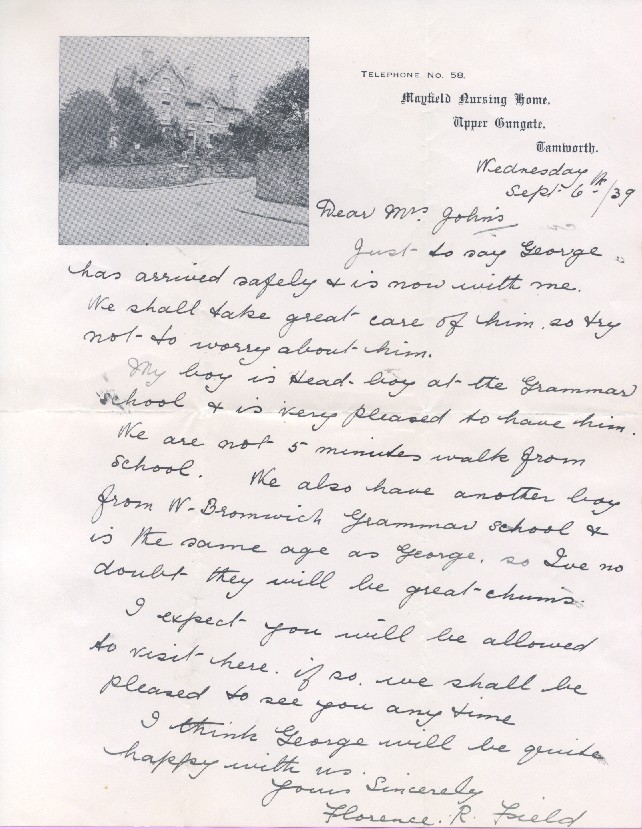 TELEPHONE NO. 58.
Mayfield Nursing Home,
Upper Gungate,
Tamworth.
Wednesday
Sept. 6th/39
Dear Mrs Johns
Just to say George
has arrived safely & is now with me.
We shall take great care of him. so try
not to worry about him.
My boy is Head-boy at the Grammar
school & is very pleased to have him.
We are not 5 minutes walk from
school. We also have another boy
from W-Bromwich Grammar school &
is the same age as George. so I've no
doubt they will be great chums.
I expect you will be allowed
to visit here. if so. we shall be
pleased to see you any time
I think George will be quite
happy with us.
Yours Sincerely
Florence. R. Field